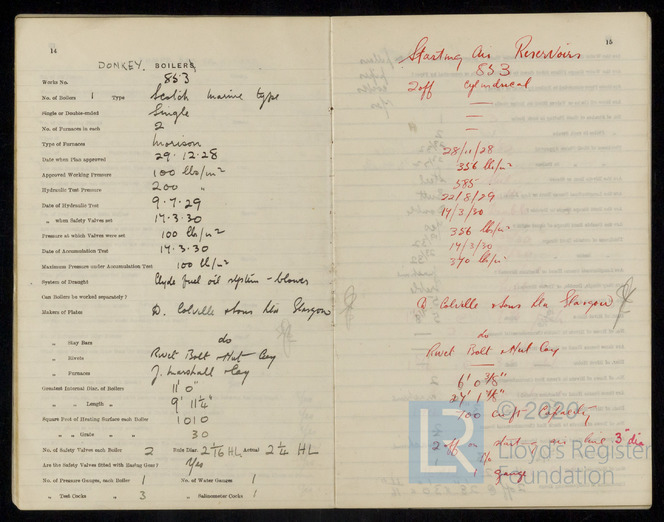 14
DONKEY BOILERS
Works No. 853
No. of Boilers 1 Type Scotch marine type
Single or Double-ended Single
No. of Furnaces in each 2
Type of Furnaces Morison
Date when Plan approved 29.12.28
Approved Working Pressure 100 lbs/in²
Hydraulic Test Pressure 200 "
Date of Hydraulic Test 9.7.29
" when Safety Valves set 17.3.30
Pressure at which Valves were set 100 lbs/in²
Date of Accumulation Test 17.3.30
Maximum Pressure under Accumulation Test 100 lb/in²
System of Draught Clyde fuel oil system - blower
Can Boilers be worked separately?
Makers of Plates D. Colville & Sons Ltd Glasgow
" Stay Bars do
" Rivets Rivet Bolt & Nut Coy
" Furnaces J. Marshall & Coy
Greatest Internal Diar. of Boilers 11' 0"
" " Length " 9' 11¼"
Square Feet of Heating Surface each Boiler 1010
" " Grate " " 30
No. of Safety Valves each Boiler 2 Rule Diar. 2 1/16 HL Actual 2 ¼ HL
Are the Safety Valves fitted with Easing Gear? Yes
No. of Pressure Gauges, each Boiler 1 No. of Water Gauges 1
" Test Cocks " 3 " Salinometer Cocks 1
15
Starting Air Reservoirs
853
2 off Cylindrical
—
—
—
28/11/28
356 lbs/in²
585
22/8/29
17/3/30
356 lbs/in²
17/3/30
370 lb/in²
D Colville & Sons Ltd Glasgow
do
Rivet Bolt & Nut Coy
—
6' 0 3/8"
24' 1 7/8"
700 cu ft Capacity
2 off on starting air line 3" dia
1 gauge
LR
© 2020
Lloyd's Register
Foundation